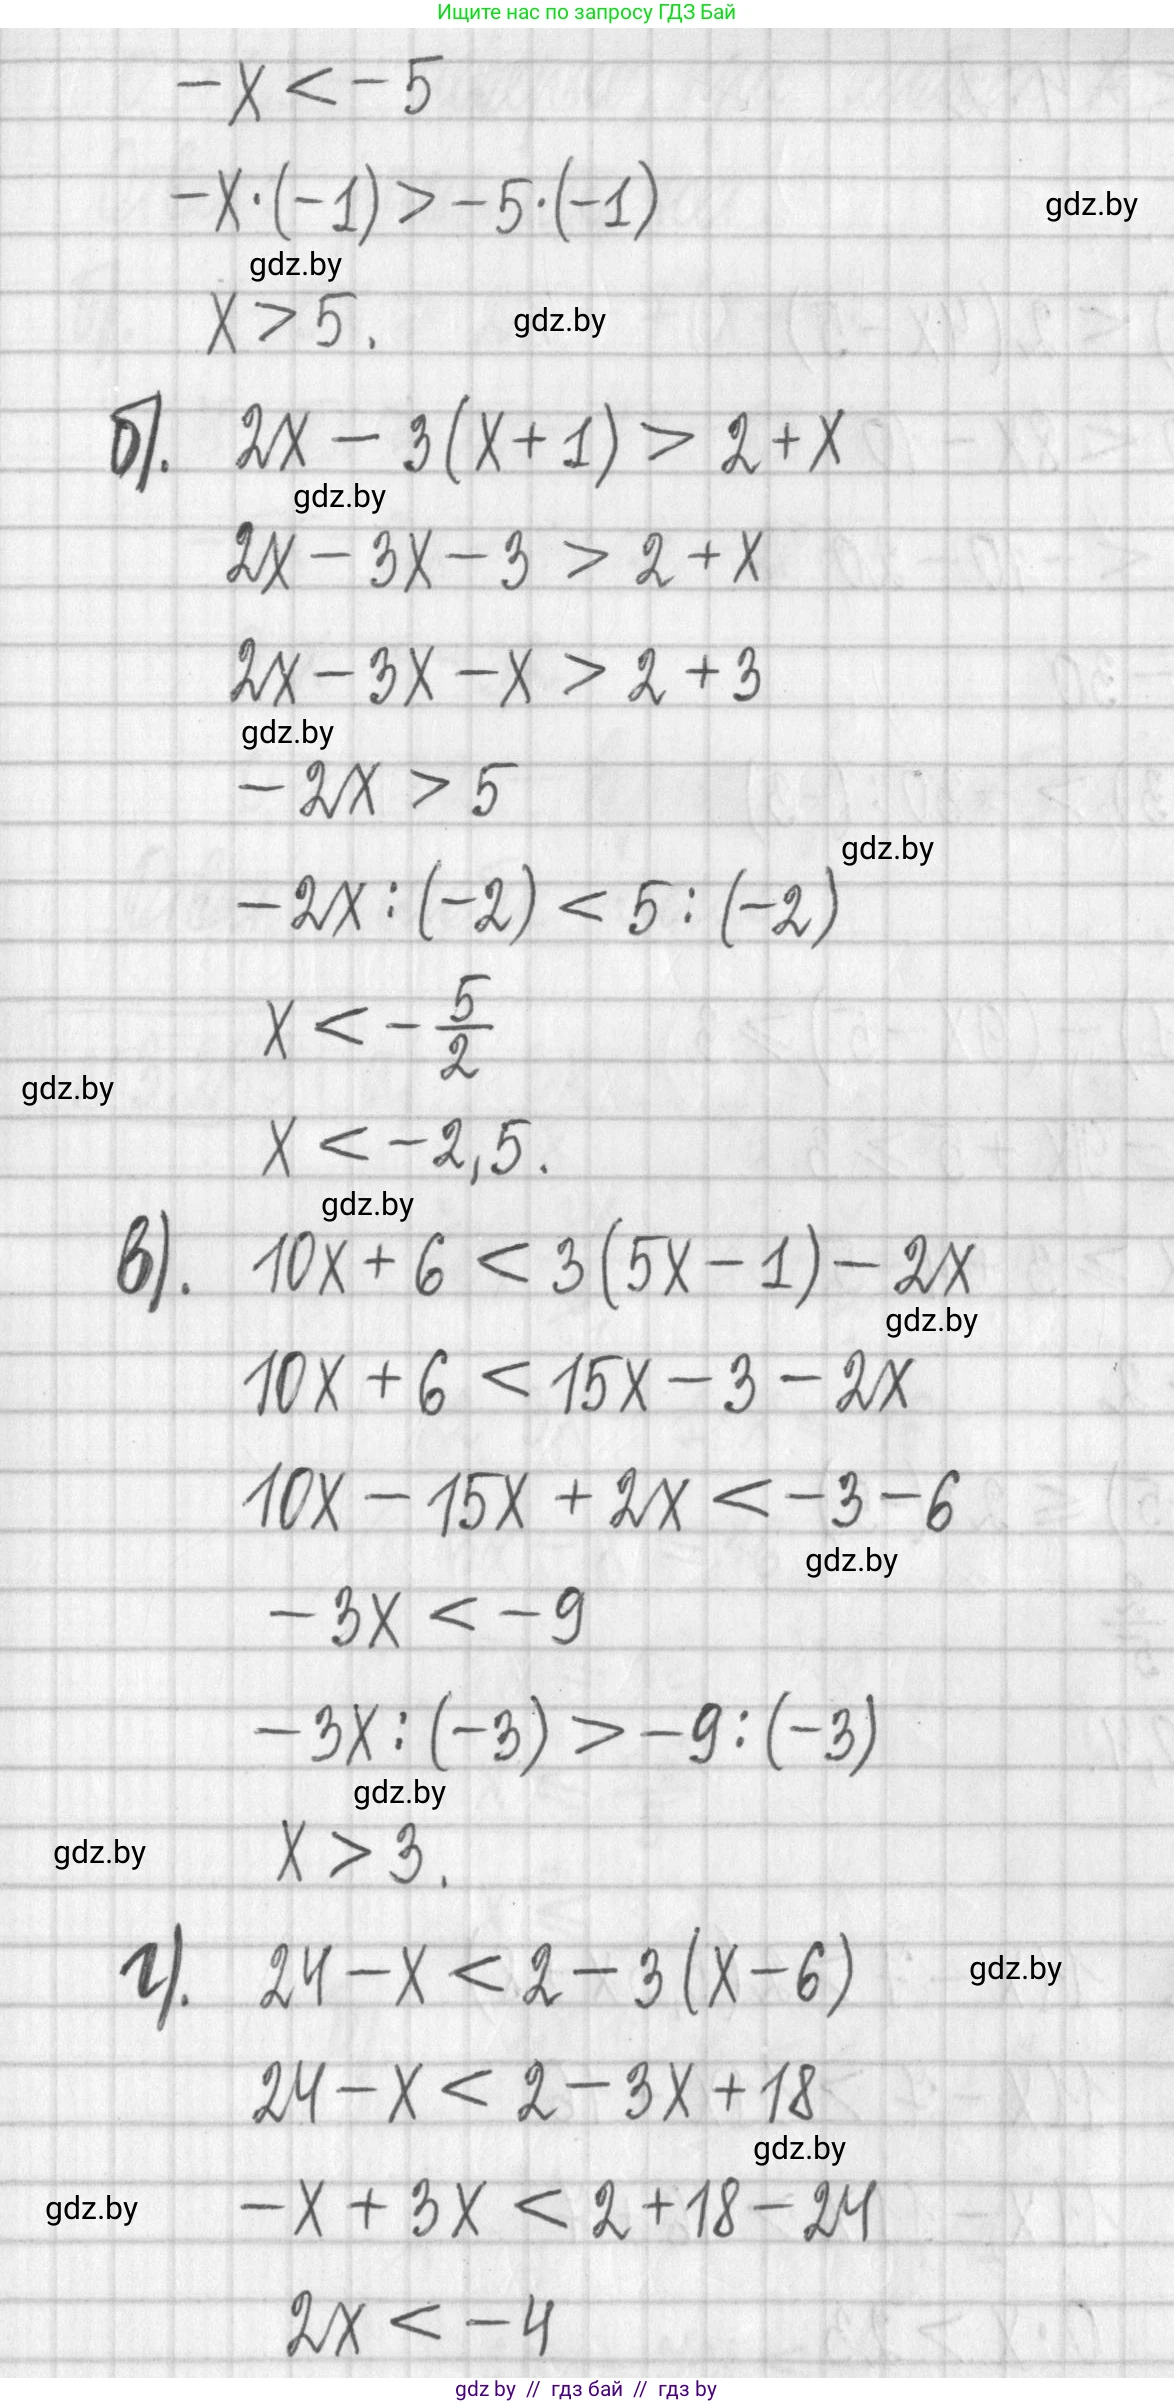 Ищите нас по запросу ГДЗ Бай
-x < -5
-x·(-1) > -5·(-1)
gdz.by
gdz.by
x > 5.
gdz.by
б). 2x - 3(x+1) > 2 + x
gdz.by
2x - 3x - 3 > 2 + x
2x - 3x - x > 2 + 3
gdz.by
-2x > 5
gdz.by
-2x : (-2) < 5 : (-2)
x < - 5/2
gdz.by
x < -2,5.
gdz.by
в). 10x + 6 < 3(5x - 1) - 2x
gdz.by
10x + 6 < 15x - 3 - 2x
10x - 15x + 2x < -3 - 6
gdz.by
-3x < -9
-3x : (-3) > -9 : (-3)
gdz.by
gdz.by
x > 3.
г). 24 - x < 2 - 3(x - 6)
gdz.by
24 - x < 2 - 3x + 18
gdz.by
gdz.by
-x + 3x < 2 + 18 - 24
2x < -4
gdz by // гдз бай // гдз by